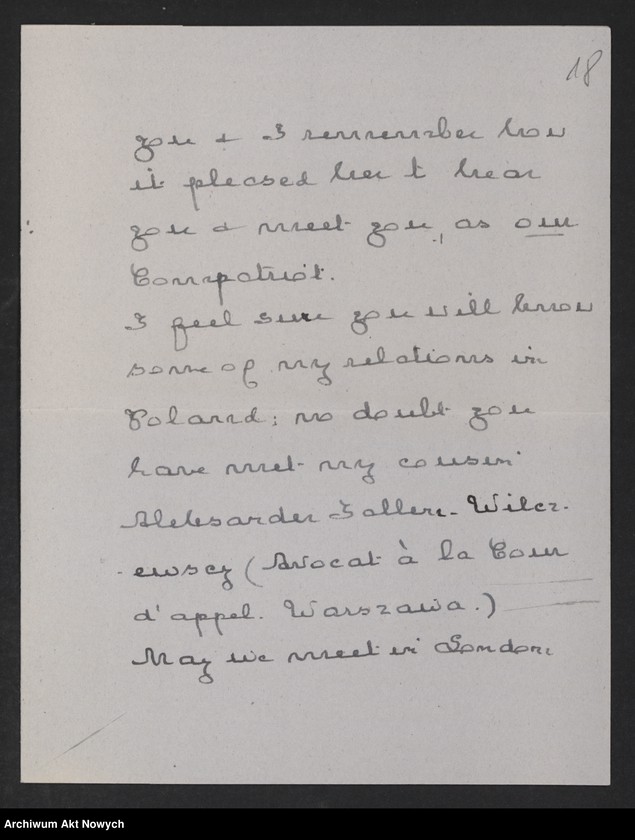 18
you & I remember how
it pleased her t hear
you & meet you, as our
Compatriot.
I feel sure you will know
some of my relations in
Poland; no doubt you
have met my cousin
Aleksander Sallen-Wilcz-
-ewscy (Avocat à la Cour
d'appel. Warszawa.)
May we meet in London
Archiwum Akt Nowych